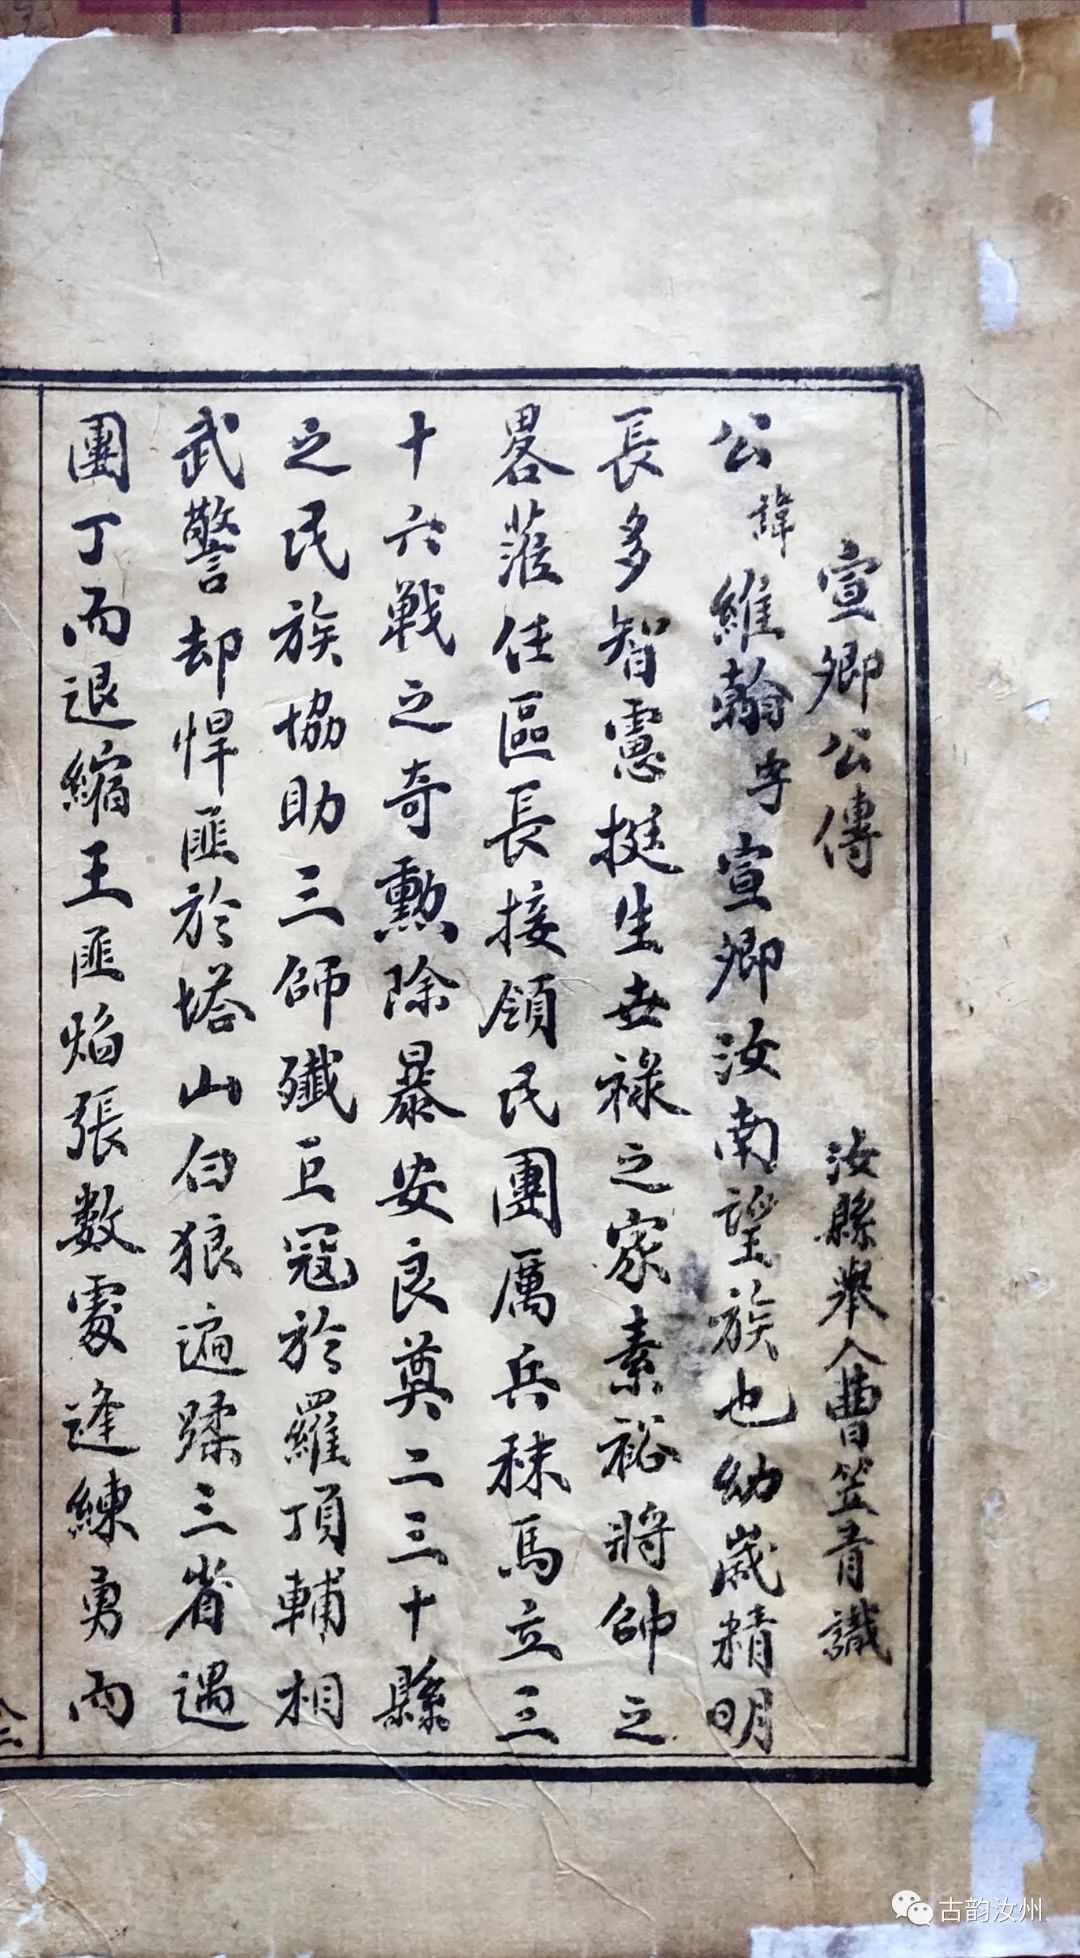 宣卿公傳　汝縣舉人曹笠青識
公諱維翰字宣卿汝南望族也幼歲精明
長多智慮挺生世祿之家素裕將帥之
畧蒞任區長接領民團厲兵秣馬立三
十六戰之奇勳除暴安良奠二三十縣
之民族協助三師殲巨寇於羅頂輔相
武警却悍匪於塔山白狼遍蹂三省遇
團丁而退縮王匪焰張數處逢練勇而
古韵汝州